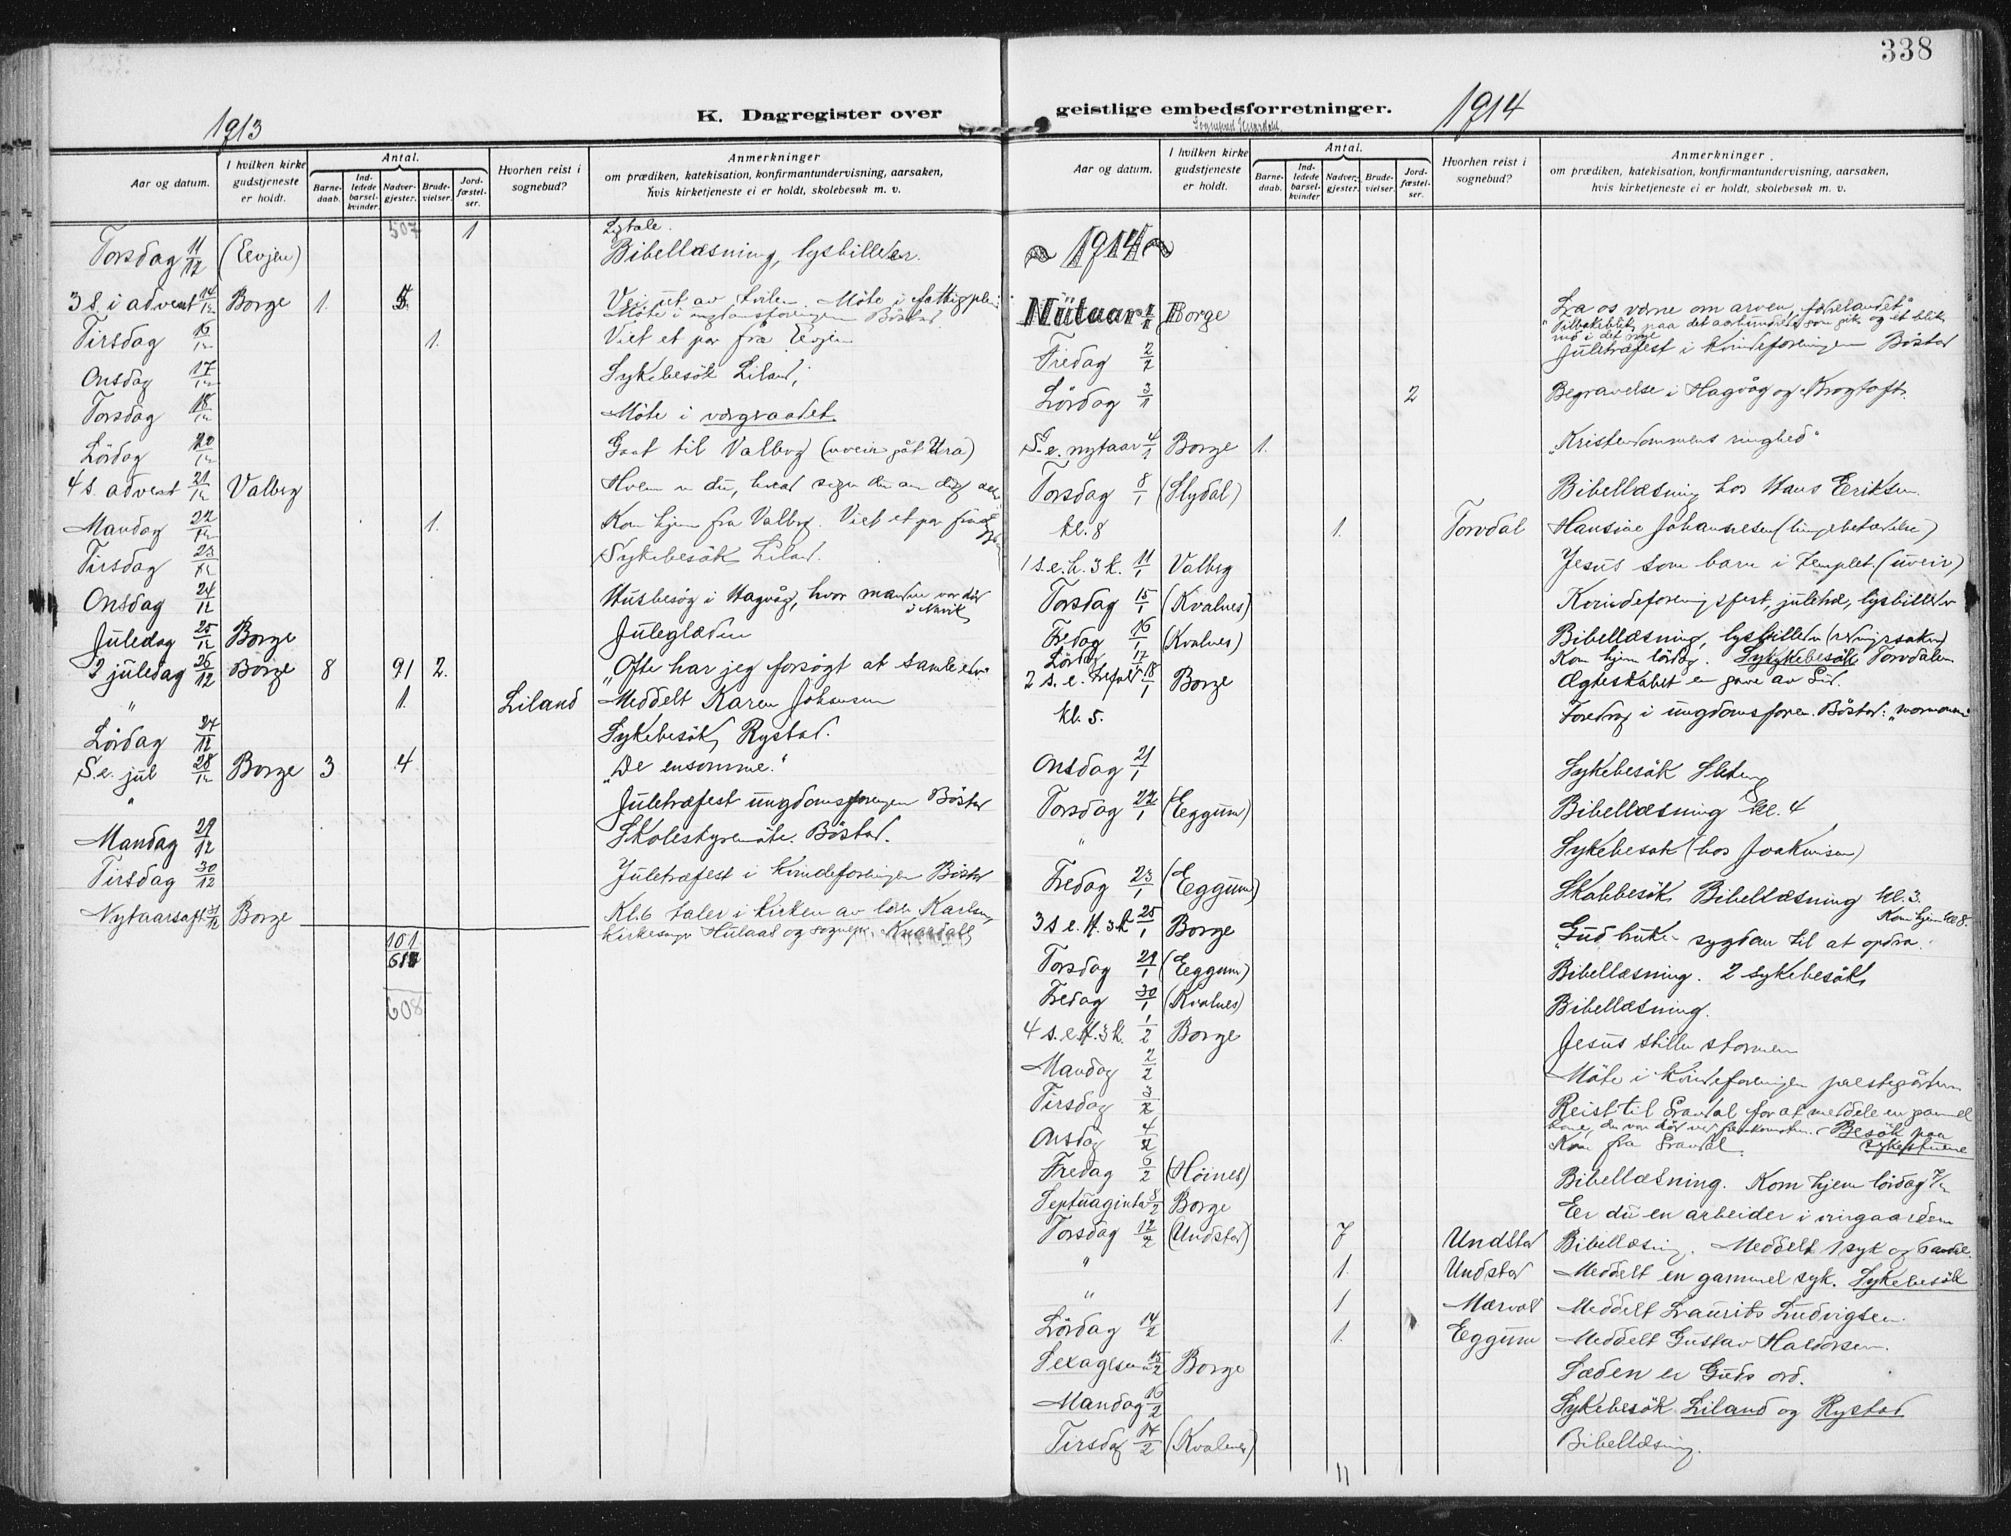 338
1913
K. Dagregister over
geistlige embedsforretninger.
1914
Aar og datum.
I hvilken kirke gudstjeneste er holdt.
Antal.
Barnedaab.
Indledede barselkvinder.
Nadvergjester.
Brudevielser.
Jordfæstelser.
Hvorhen reist i sognebud?
Anmerkninger
om prædiken, katekisation, konfirmantundervisning, aarsaken, hvis kirketjeneste ei er holdt, skolebesøk m. v.
507 1
Torsdag 11/12 (Evjen) Bibellæsning, lysbilleder.
3 s. i advent 14/12 Borge 1.
Tirsdag 16/12 1. Viet et par fra Evjen
Onsdag 17/12 Sykebesök Liland
Torsdag 18/12 Möte i vergraadet
Lördag 20/12 Gaat til Valberg (uveir på Ura)
4 s. advent 21/12 Valberg Hvem er du, hvad siger du om dig
Mandag 22/12 1. Kom hjem fra Valberg. Viet et par fra
Tirsdag 23/12 Sykebesök Liland.
Onsdag 24/12 Husbesög i Hagvåg, hvor manden var död i Narvik
Juledag 25/12 Borge Juleglæden
2 juledag 26/12 Borge 8 91 2. „Ofte har jeg forsögt at samle eder
" 1. Liland Meddelt Karen Johansen
Lördag 27/12 Sykebesök, Rystad.
S. e. jul 28/12 Borge 3 4 „De ensomme."
" Juletræfest ungdomsforeningen Böstad
Mandag 29/12 Skolestyremöte. Böstad.
Tirsdag 30/12 Juletræfest i kvindeforeningen Böstad
Nytaarsaft 31/12 Borge Kl. 6 taler i kirken av Karlsen,
kirkesanger Hulaas og sognepr.
101
608
Aar og datum.
I hvilken kirke gudstjeneste er holdt.
Antal.
Barnedaab.
Indledede barselkvinder
Nadvergjester.
Brudevielser.
Jordfæstelser.
Hvorhen reist i sognebud?
Anmerkninger.
om prædiken, katekisation, konfirmantundervisning, aarsaken, hvis kirketjeneste ei er holdt, skolebesøk m. v.
~ 1914 ~
Nütaar 1/1 Borge La os verne om arven, fædrelandet"
Fredag 2/1 Juletræfest i kvindeforeningen Böstad
Lördag 3/1 2 Begravelse i Hagvåg og Krogtoft.
S. e. nytaar 4/1 Borge 1. „Kristendommens ringhed"
Torsdag 8/1 (Slydal) Bibellæsning hos Hans Eriksen.
kl. 8 1. Torvdal Hansine Johannesen
1 s. e. h. 3 k. 11/1 Valberg Jesus som barn i templet. (uveir)
Torsdag 15/1 (Kvalnes) Kvindeforeningsfest, juletræ, lysbilleder
Fredag 16/1 (Kvalnes) Bibellæsning, lysbilleder
Lördag 17/1 Kom hjem lördag. Sykebesök Torvdalen
2 s. e. 18/1 Borge Ægteskabet en gave av Gud.
kl. 5. Foredrag i ungdomsforen. Böstad:
Onsdag 21/1 Sykebesök
Torsdag 22/1 (Eggum) Bibellæsning kl. 4
" Sykebesøk (hos Joakimsen)
Fredag 23/1 (Eggum) Bibellæsning kl. 3.
Kom hjem kl 8.
3 s. e. H. 3 k 25/1 Borge „Gud bruker sygdom til at opdra.
Torsdag 29/1 (Eggum) Bibellæsning. 2 sykebesök
Fredag 30/1 (Kvalnes) Bibellæsning.
4 s. e. H. 3 k. 1/2 Borge Jesus stiller stormen
Mandag 2/2 Möte i kvindeforeningen prestegården
Tirsdag 3/2 Reist til Gravdal for at meddele en gammel
Onsdag 4/2 Kom fra Gravdal. Besök paa sykestuene
Fredag 6/2 (Höines) Bibellæsning. Kom hjem lördag 7/2
Septuaginta 8/2 Borge Er du en arbeider i vingaarden
Torsdag 12/2 (Undstad) 7 Undstad Bibellæsning. Meddelt 1 syk og 6 andre.
" 1. Undstad Meddelt en gammel syk. Sykebesök
" 1 Mærvol Meddelt Laurits Ludvigsen.
Lördag 14/2 1. Eggum Meddelt Gustav Haldorsen.
Sexagesima 15/2 Borge Sæden er Guds ord.
Mandag 16/2 Sykebesök Liland og Rystad
Tirsdag 17/2 (Kvalnes) Bibellæsning.
11